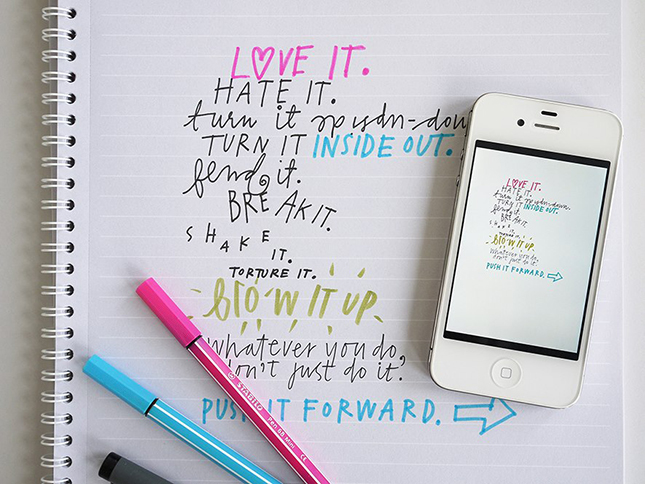 LOVE IT.
HATE IT.
turn it upside-dow
TURN IT INSIDE OUT.
bend it.
BREAK IT.
SHAKE
IT.
TORTURE IT.
BLOW IT UP
whatever you do,
on't just do it.
PUSH IT FORWARD.
STABILO Pen 68 Mini
LOVE IT.
HATE IT.
turn it upside-down
TURN IT INSIDE OUT.
bend it.
BREAK IT.
SHAKE
IT.
BLOW IT UP
whatever you do,
don't just do it.
PUSH IT FORWARD.